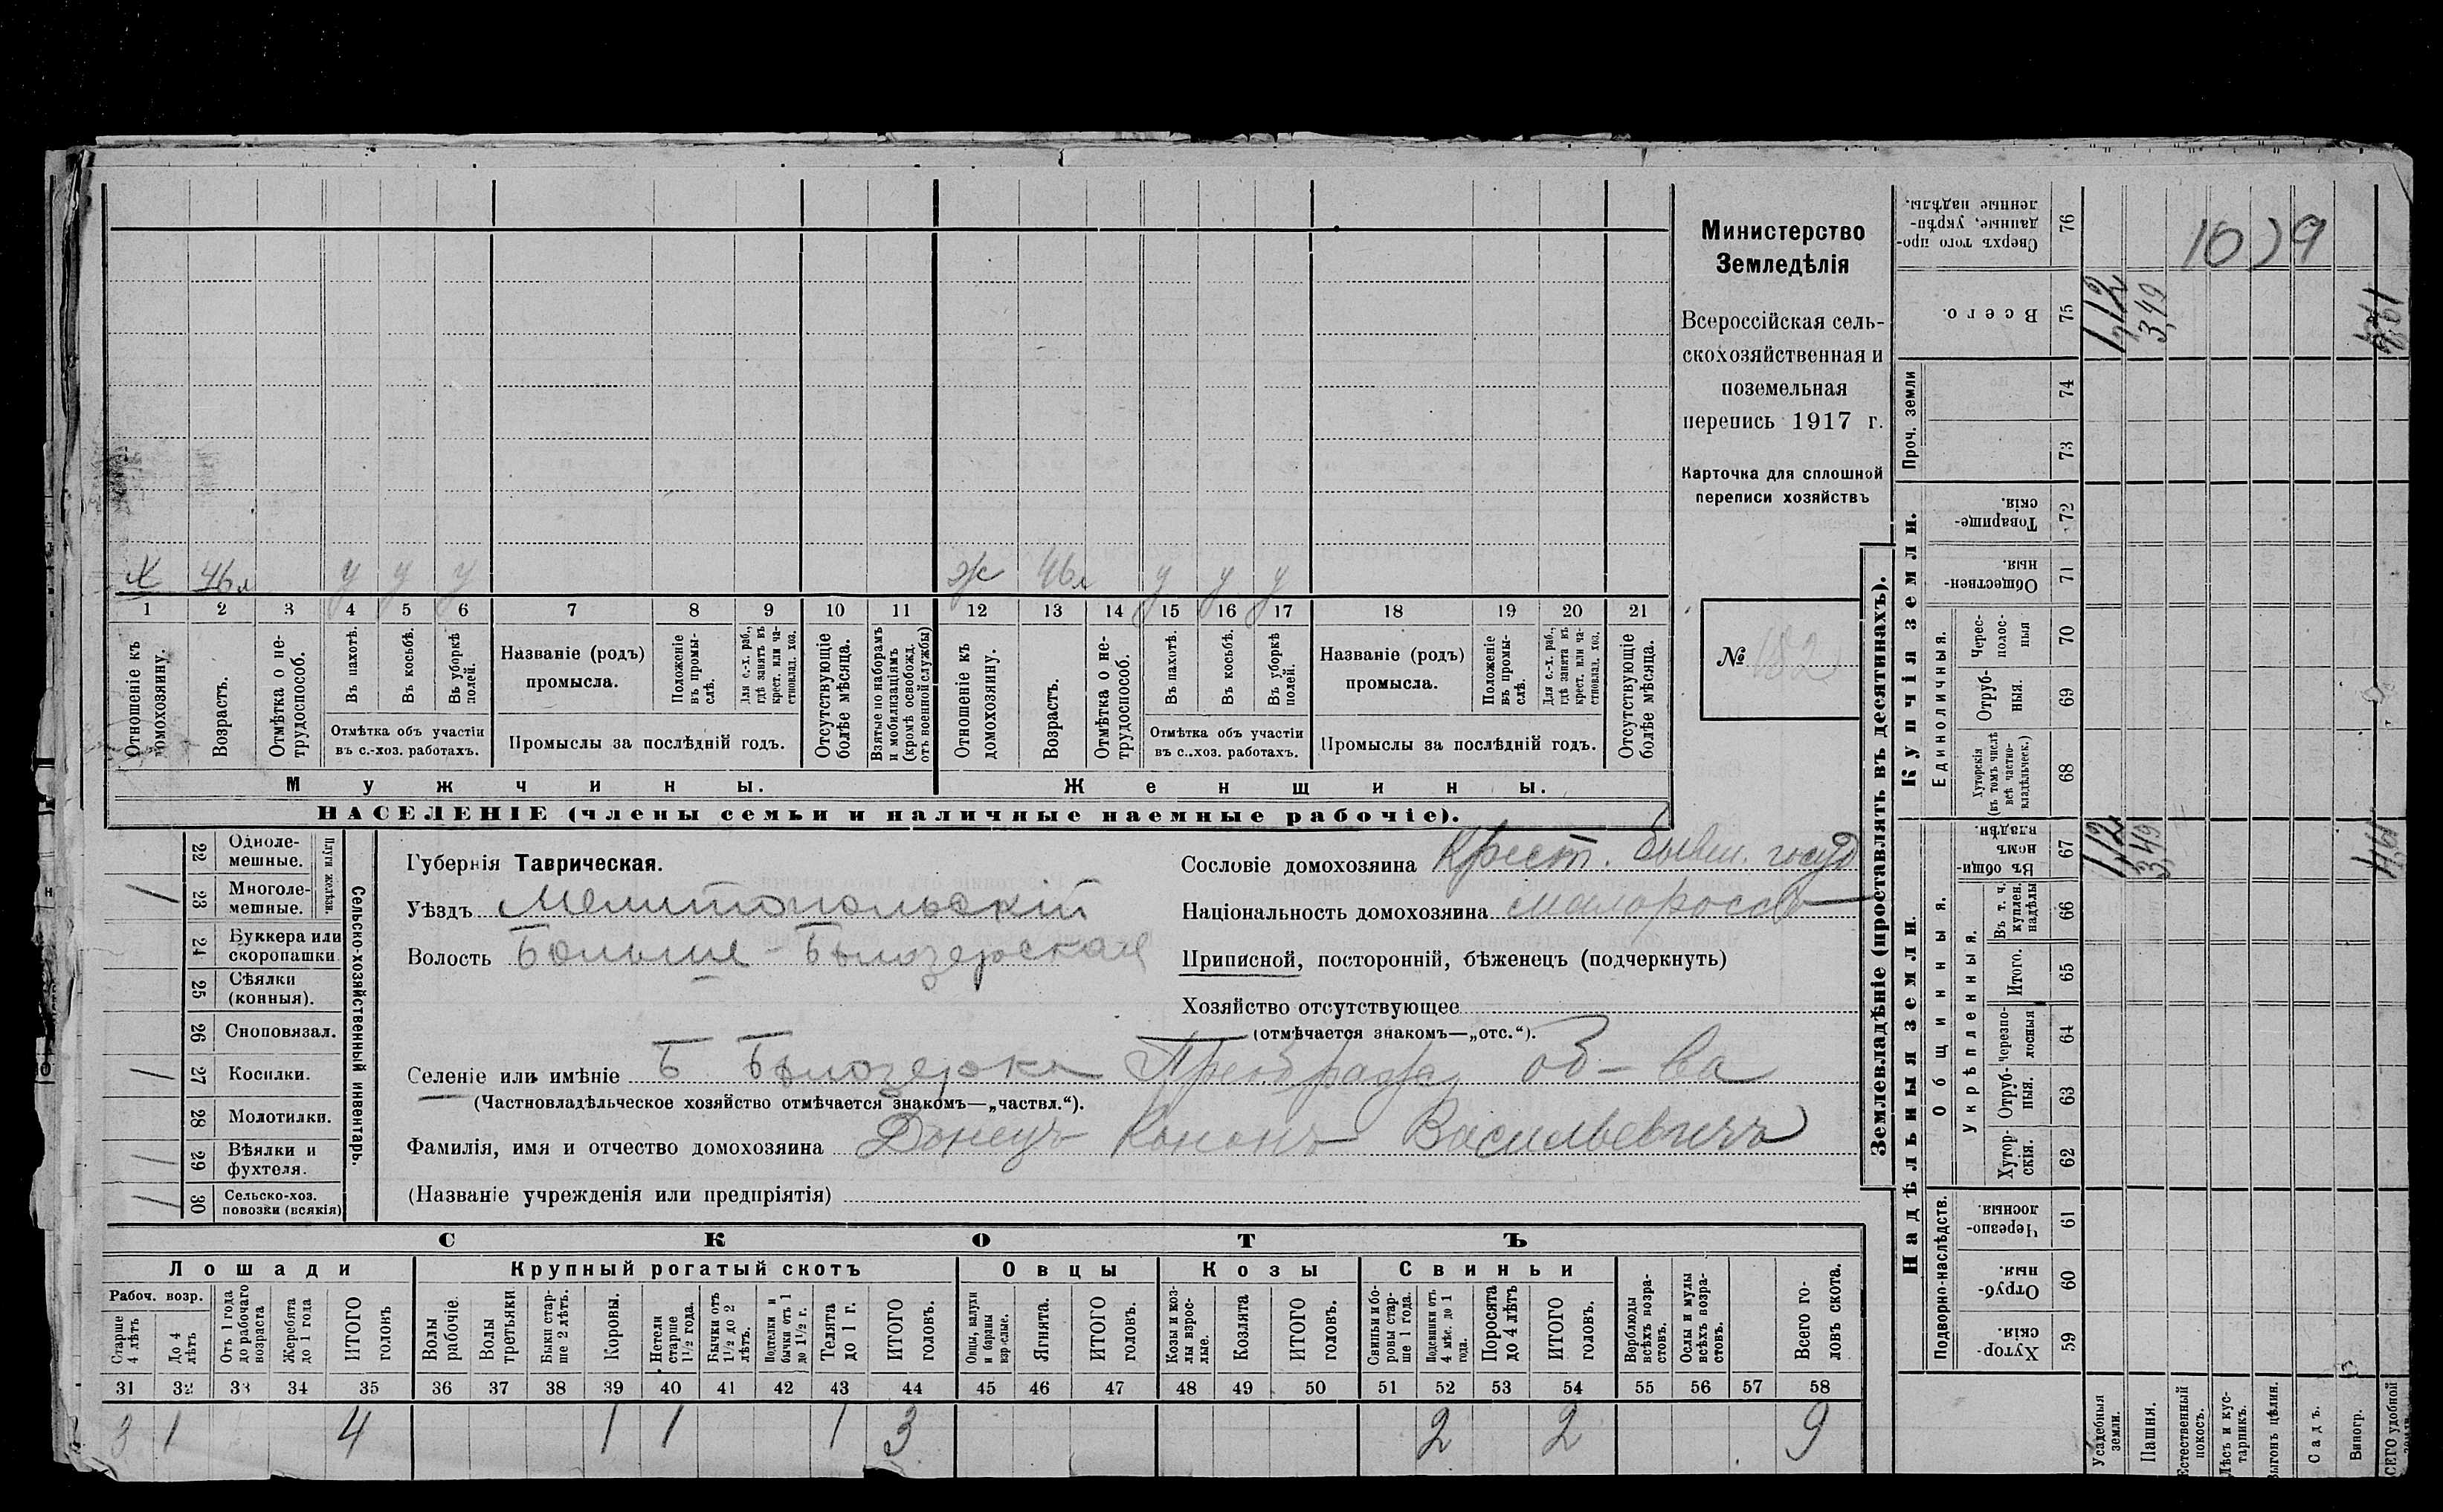 Министерство
Земледѣлія
Всероссійская сель-
скохозяйственная и
поземельная
перепись 1917 г.
Карточка для сплошной
переписи хозяйствъ
№ 182
Х 46 л у у у ж 46 л у у у
1 2 3 4 5 6 7 8 9 10 11 12 13 14 15 16 17 18 19 20 21
Отношеніе къ домохозяину.
Возрастъ.
Отмѣтка о не-трудоспособ.
Въ пахотѣ.
Въ косьбѣ.
Въ уборкѣ полей.
Отмѣтка объ участіи
въ с.-хоз. работахъ.
Названіе (родъ)
промысла.
Положеніе въ промы-слѣ.
Для с.-х. раб., гдѣ занятъ въ крест. или ча-стновлад. хоз.
Промыслы за послѣдній годъ.
Отсутствующіе болѣе мѣсяца.
Взятые по наборамъ и мобилизаціямъ (кромѣ освобожд. отъ военной службы)
Отношеніе къ домохозяину.
Возрастъ.
Отмѣтка о не-трудоспособ.
Въ пахотѣ.
Въ косьбѣ.
Въ уборкѣ полей.
Отмѣтка объ участіи
въ с..хоз. работахъ.
Названіе (родъ)
промысла.
Положеніе въ промы-слѣ.
Для с.-х. раб., гдѣ занята въ крест. или ча-стновлад. хоз.
Промыслы за послѣдній годъ.
Отсутствующіе болѣе мѣсяца.
Мужчины.
Женщины.
НАСЕЛЕНІЕ (члены семьи и наличные наемные рабочіе).
22 Одноле-мешные.
23 Многоле-мешные.
Плуги желѣзн.
24 Буккера или скоропашки
25 Сѣялки (конныя).
26 Сноповязал.
27 Косилки.
28 Молотилки.
29 Вѣялки и фухтеля.
30 Сельско-хоз. повозки (всякія)
Сельско-хозяйственный инвентарь.
Губернія Таврическая.
Уѣздъ Мелитопольскій
Волость Больше-Бѣлозерская
Сословіе домохозяина Крест. бывш. госуд
Національность домохозяина малороссъ
Приписной, посторонній, бѣженецъ (подчеркнуть)
Хозяйство отсутствующее
(отмѣчается знакомъ—„отс.“).
Селеніе или имѣніе Б Бѣлозерка Преображ об-ва
(Частновладѣльческое хозяйство отмѣчается знакомъ—„частвл.“).
Фамилія, имя и отчество домохозяина Донецъ Кононъ Васильевичъ
(Названіе учрежденія или предпріятія)
СКОТЪ
Лошади Крупный рогатый скотъ Овцы Козы Свиньи
Рабоч. возр.
Старше 4 лѣтъ
До 4 лѣтъ
Отъ 1 года до рабочаго возраста
Жеребята до 1 года
ИТОГО головъ
Волы рабочіе.
Волы третьяки
Быки стар-ше 2 лѣтъ.
Коровы.
Нетели старше 1½ года.
Бычки отъ 1½ до 2 лѣтъ.
Подтелки и бычки отъ 1 до 1½ г.
Телята до 1 г.
ИТОГО головъ.
Овцы, валухи и бараны взрослые.
Ягнята.
ИТОГО головъ.
Козы и коз-лы взрос-лые.
Козлята
ИТОГО головъ.
Свиньи и бо-ровы стар-ше 1 года.
Подсвинки отъ 4 мѣс. до 1 года.
Поросята до 4 лѣтъ
ИТОГО головъ.
Верблюды всѣхъ возра-стовъ.
Ослы и мулы всѣхъ возра-стовъ.
Всего го-ловъ скота.
31 32 33 34 35 36 37 38 39 40 41 42 43 44 45 46 47 48 49 50 51 52 53 54 55 56 57 58
3 1 4 1 1 1 3 2 2 9
Землевладѣніе (проставлять въ десятинахъ).
Купчія земли.
Надѣльныя земли.
Сверхъ того про-данные, укрѣп-ленные надѣлы. 76
1079
Всего. 75
1,12
3,49
4,61
Проч. земли
74
73
Товарище-скія. 72
Обществен-ныя. 71
Единоличныя.
Черес-полос-ныя 70
Отруб-ныя. 69
Хуторскія (въ томъ числѣ всѣ частно-владѣльческ.) 68
Общинныя.
Въ общи-номъ владѣн. 67
1,12
3,49
4,61
Укрѣпленныя.
Въ т. ч. куплен. надѣлы 66
Итого. 65
Черезпо-лосныя 64
Отруб-ныя. 63
Хутор-скія. 62
Подворно-наслѣдств.
Черезпо-лосныя. 61
Отруб-ныя. 60
Хутор-скія. 59
Усадебныя земли.
Пашня.
Естественный покосъ.
Лѣсъ и кус-тарникъ.
Выгонъ цѣлин.
Садъ.
Виногр.
ВСЕГО удобной